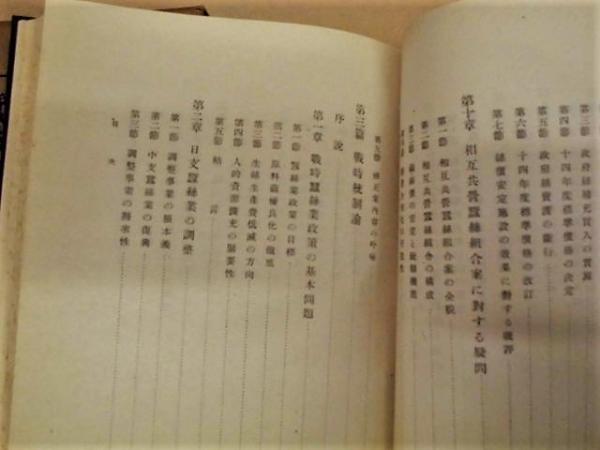 第三節 政府絲補充買入の實
第四節 十四年度標準價格の決定
第五節 政府絲賣渡の斷行
第六節 十四年度標準價格の改訂
第七節 絲價安定施設の效果に對する批評
第十章 相互共營蠶絲組合案に對する疑問
第一節 相互共營蠶絲組合案の全貌
第二節 相互共營蠶絲組合の構成
第三節
第五節 修正案內容の吟味
第三篇 戰時統制論
序說
第一章 戰時蠶絲業政策の基本問題
第一節 蠶絲業政策の目標
第二節 原料繭種良化の徹底
第三節 生絲生產費低減の方向
第四節 人的資源擴充の緊要性
第五節 結言
第二章 日支蠶絲業の調整
第一節 調整事業の根本義
第二節 中支蠶絲業の復興
第三節 調整事業の務求性
目次